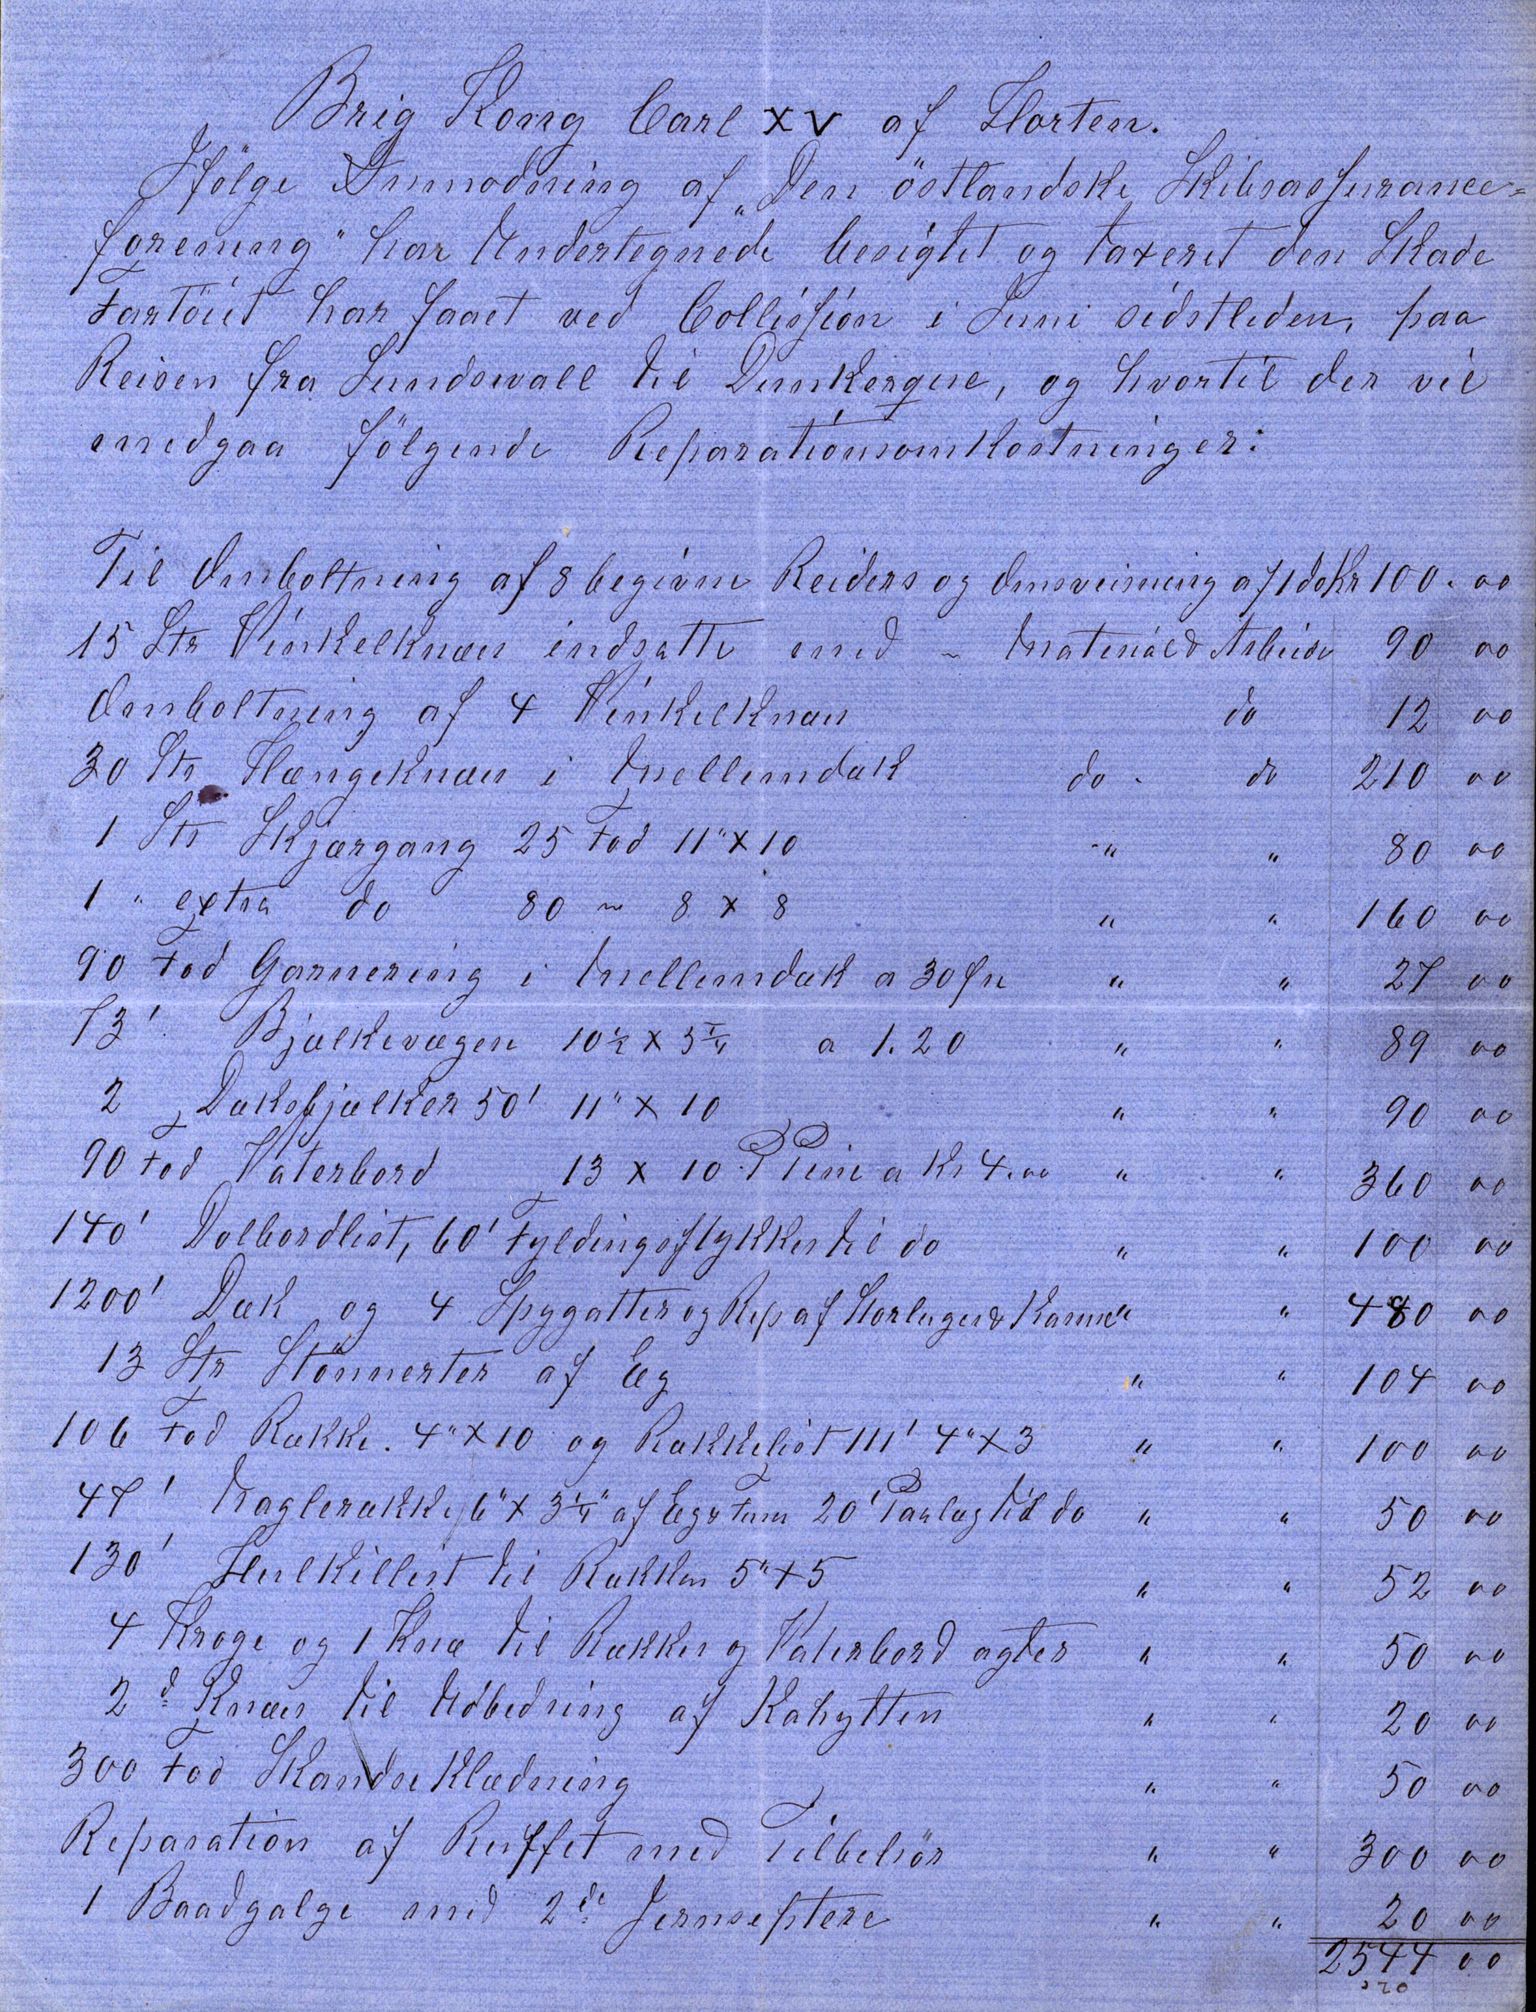 Brig Kong Carl XV af Horten.
Ifølge Anmodning af „Den östlandske Skibsassurance=
forening" har Undertegnede besigtet og taxeret den Skade
Fartöiet har faaet ved Collission i Juni sidstleden, paa
Reisen fra Sundswall til Dunkerque, og hvortil der vil
medgaa følgende Reparationsomkostninger:
Til Omboltning af 8 begivne Reiders og Omsveisning af 1 do Kr 100. 00
15 Stk Vinkelknær indsatte med ~ Material & Arbeide 90 00
Omboltning af 4 Vinkelknær do 12 00
30 Stk Hængeknær i Mellemdæk do. do 210 00
1 Stk Skjærgang 25 Fod 11" x 10 " " 80 00
1 " extra do 80 ~ 8 x 8 " " 160 00
90 Fod Garnering i Mellemdæk a 30 Øre " " 27 00
73' Bjælkevægere 10½ x 5¼ a 1.20 " " 89 00
2 Dæksbjælker 50' 11" x 10 " " 90 00
90 Fod Vaterbord 13 x 10 P Pine a Kr 4.00 " " 360 00
140' Dolbordlist, 60' Fyldingsstykker til do " " 100 00
1200' Dæk og 4 Spygatter og Rep af Storluger & Karme " " 480 00
13 Stk Stönnerter af Eg " " 104 00
106 Fod Række. 4" x 10 og Rækkelist 111' 4" x 3 " " 100 00
47' Naglerække 6" x 3¼" af Eg & Furu 20' Paalæg til do " " 50 00
130' Hulkillist til Rækken 5" x 5 " " 52 00
4 Kroge og 1 Knæ til Rækker og Vaterbord agter " " 50 00
2d Knær til Udbedring af Kahytten " " 20 00
300 Fod Skandseklædning " " 50 00
Reparation af Ruffet med Tilbehör " " 300 00
1 Baadgalge med 2de Jernseptere " " 20 00
2544 00